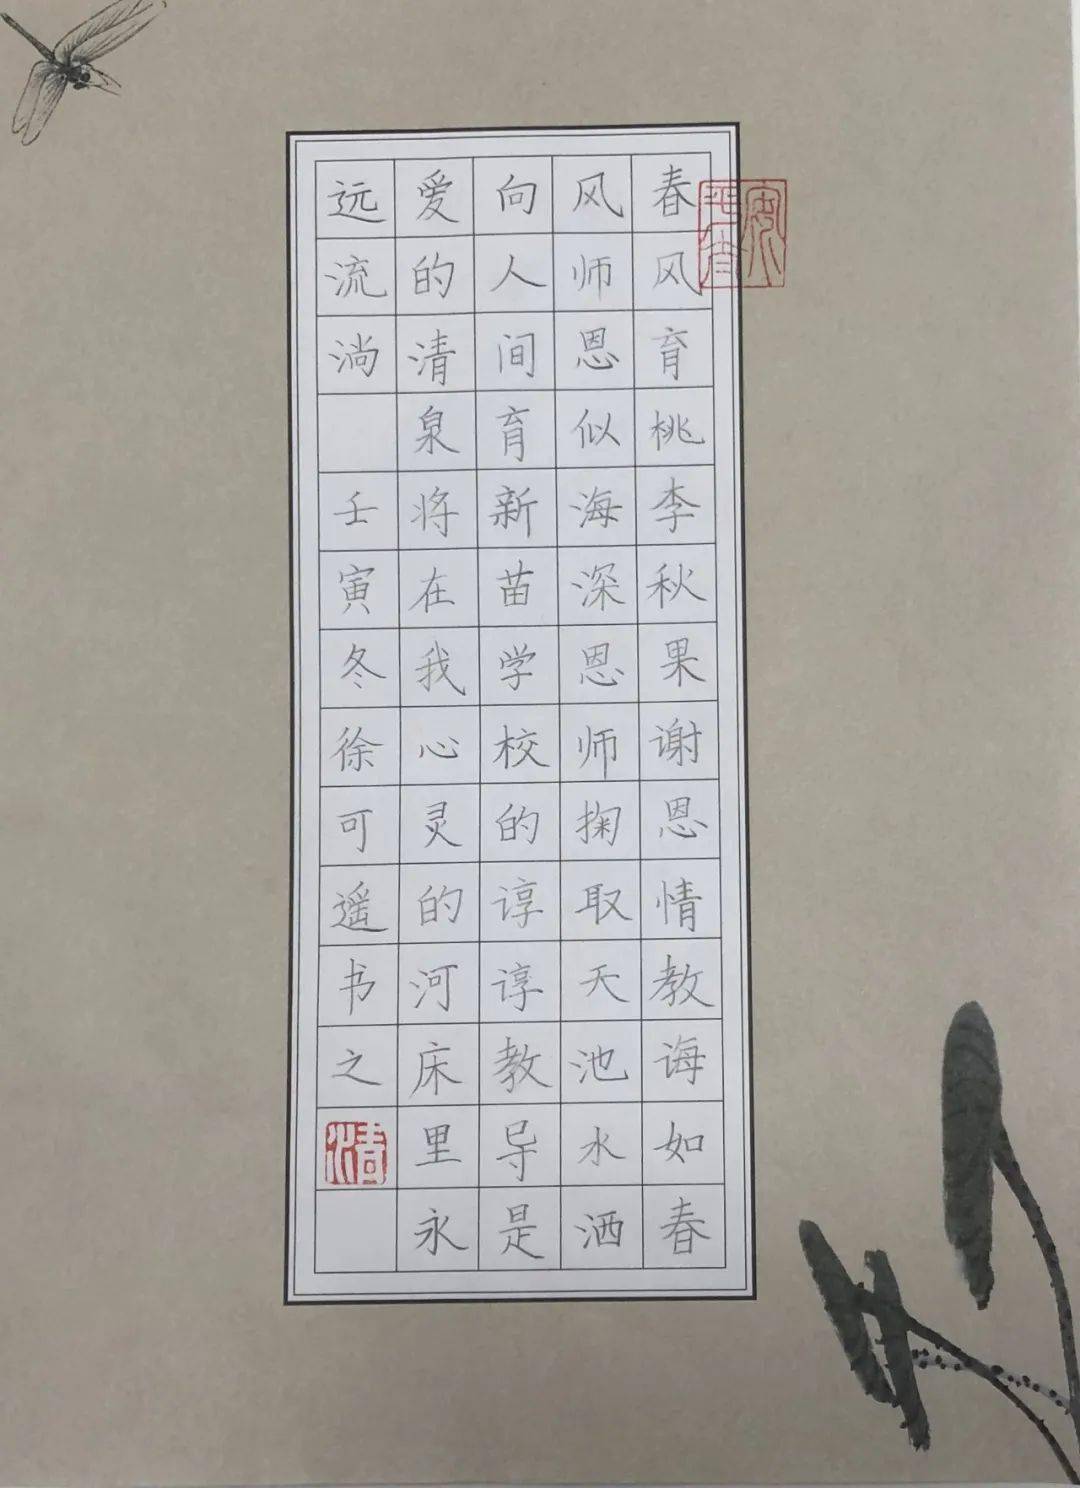 春风育桃李秋果谢恩情教诲如春
风师恩似海深恩师掬取天池水洒
向人间育新苗学校的谆谆教导是
爱的清泉将在我心灵的河床里永
远流淌 壬寅冬徐可遥书之